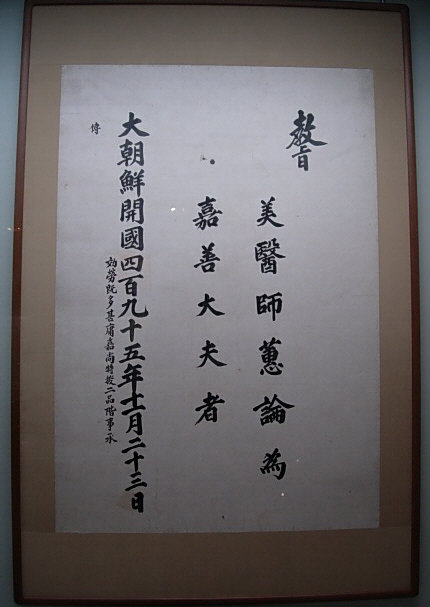 教旨
美醫師蕙論爲
嘉善大夫者
大朝鮮開國四百九十五年十一月二十三日
効勞旣多甚庸嘉尚特授二品階事承
傳